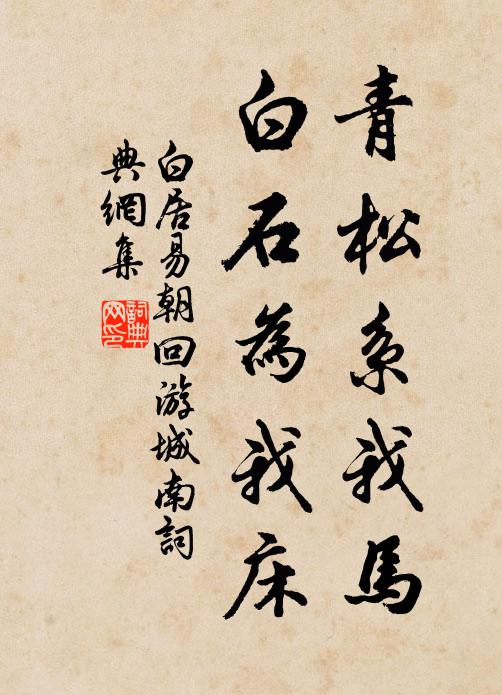 青松系我馬
白石為我床
白居易朝回游城南詞
典網集
詞典网印